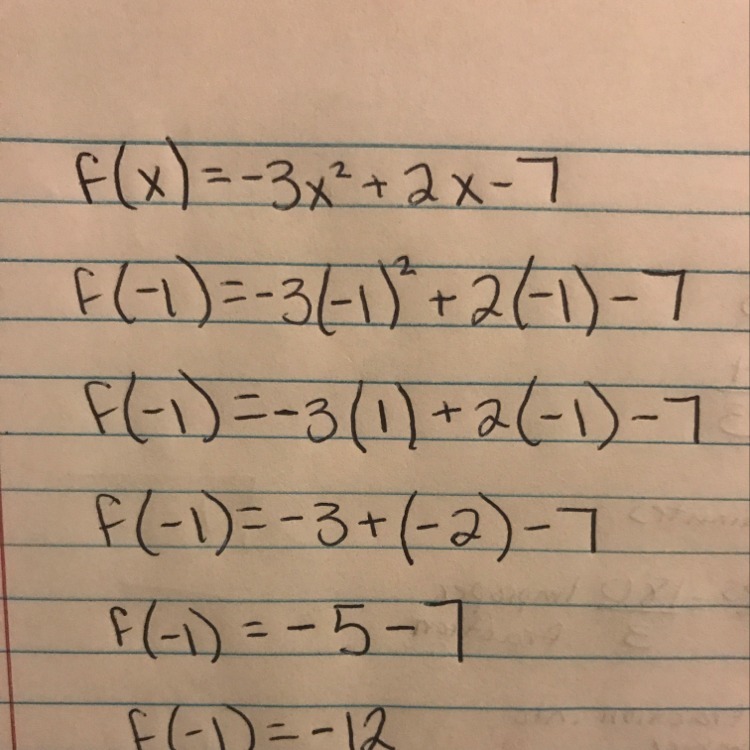 f(x)=-3x²+2x-7
f(-1)=-3(-1)²+2(-1)-7
f(-1)=-3(1)+2(-1)-7
f(-1)=-3+(-2)-7
f(-1)=-5-7
f(-1)=-12